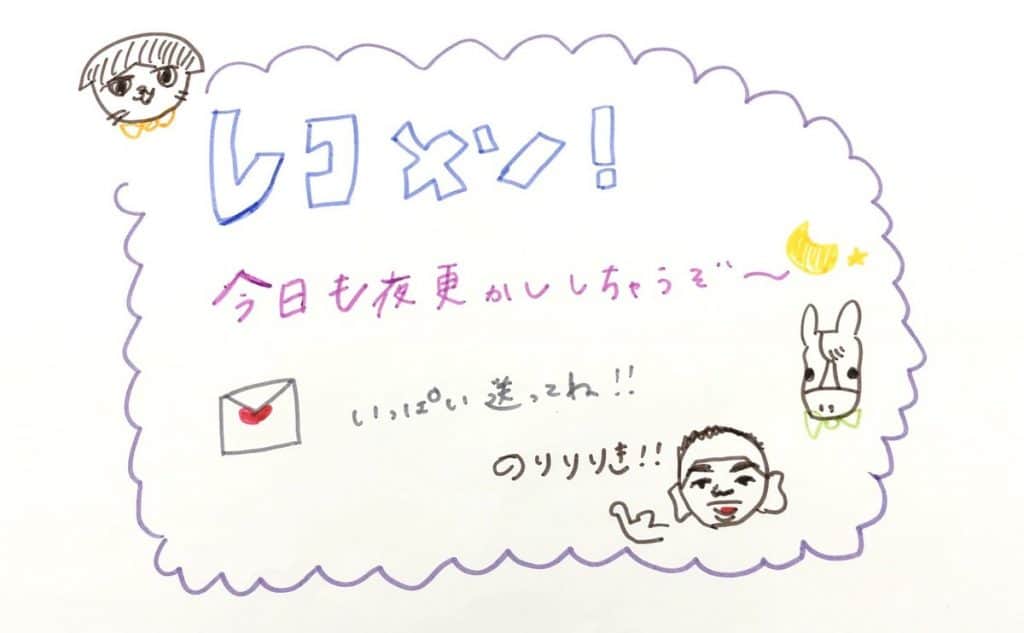 レコメン!
今日も夜更かししちゃうぞ〜
いっぱい送ってね!!
のりりりき!!